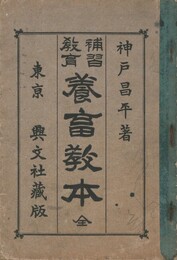 神戸昌平著
補習
教育
養畜教本
全
東京 興文社藏版